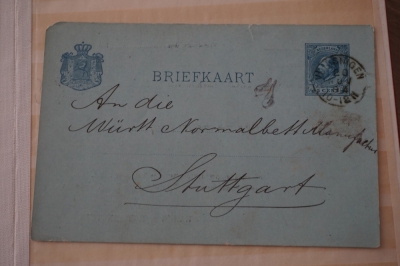 BRIEFKAART
An die
Württ Normalbett Manufaktur
Stuttgart